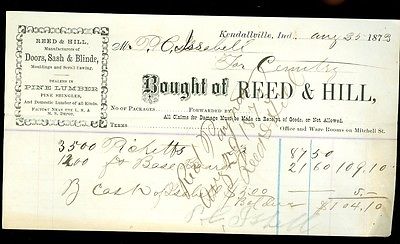 REED & HILL,
Manufacturers of
Doors, Sash & Blinds,
Mouldings and Scroll Sawing.
DEALERS IN
PINE LUMBER
PINE SHINGLES,
And Domestic Lumber of all Kinds.
Factory Near the L. S. & M. S. Depot.
Kendallville, Ind. Aug 25 1873
M P. C. Issabell
For Cemetry
Bought of REED & HILL,
NO. OF PACKAGES. FORWARDED PER
All Claims for Damage Must be Made on Receipt of Goods, or Not Allowed.
TERMS Office and Ware Rooms on Mitchell St.
3500 Picketts 87 50
1200 ft Bass 21 60 109.10
By cash 5.00 5.–
Bal due $104.10
Rec Payment
Reed & Hill